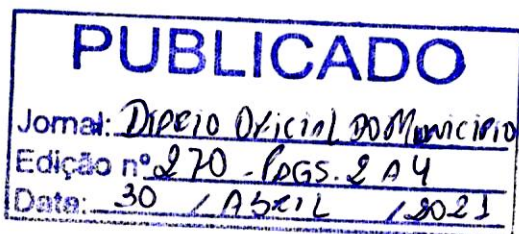 PUBLICADO
Jornal: Diário Oficial do Município
Edição nº 270 - PAGS. 2 A 4
Data: 30 / Abril / 2021